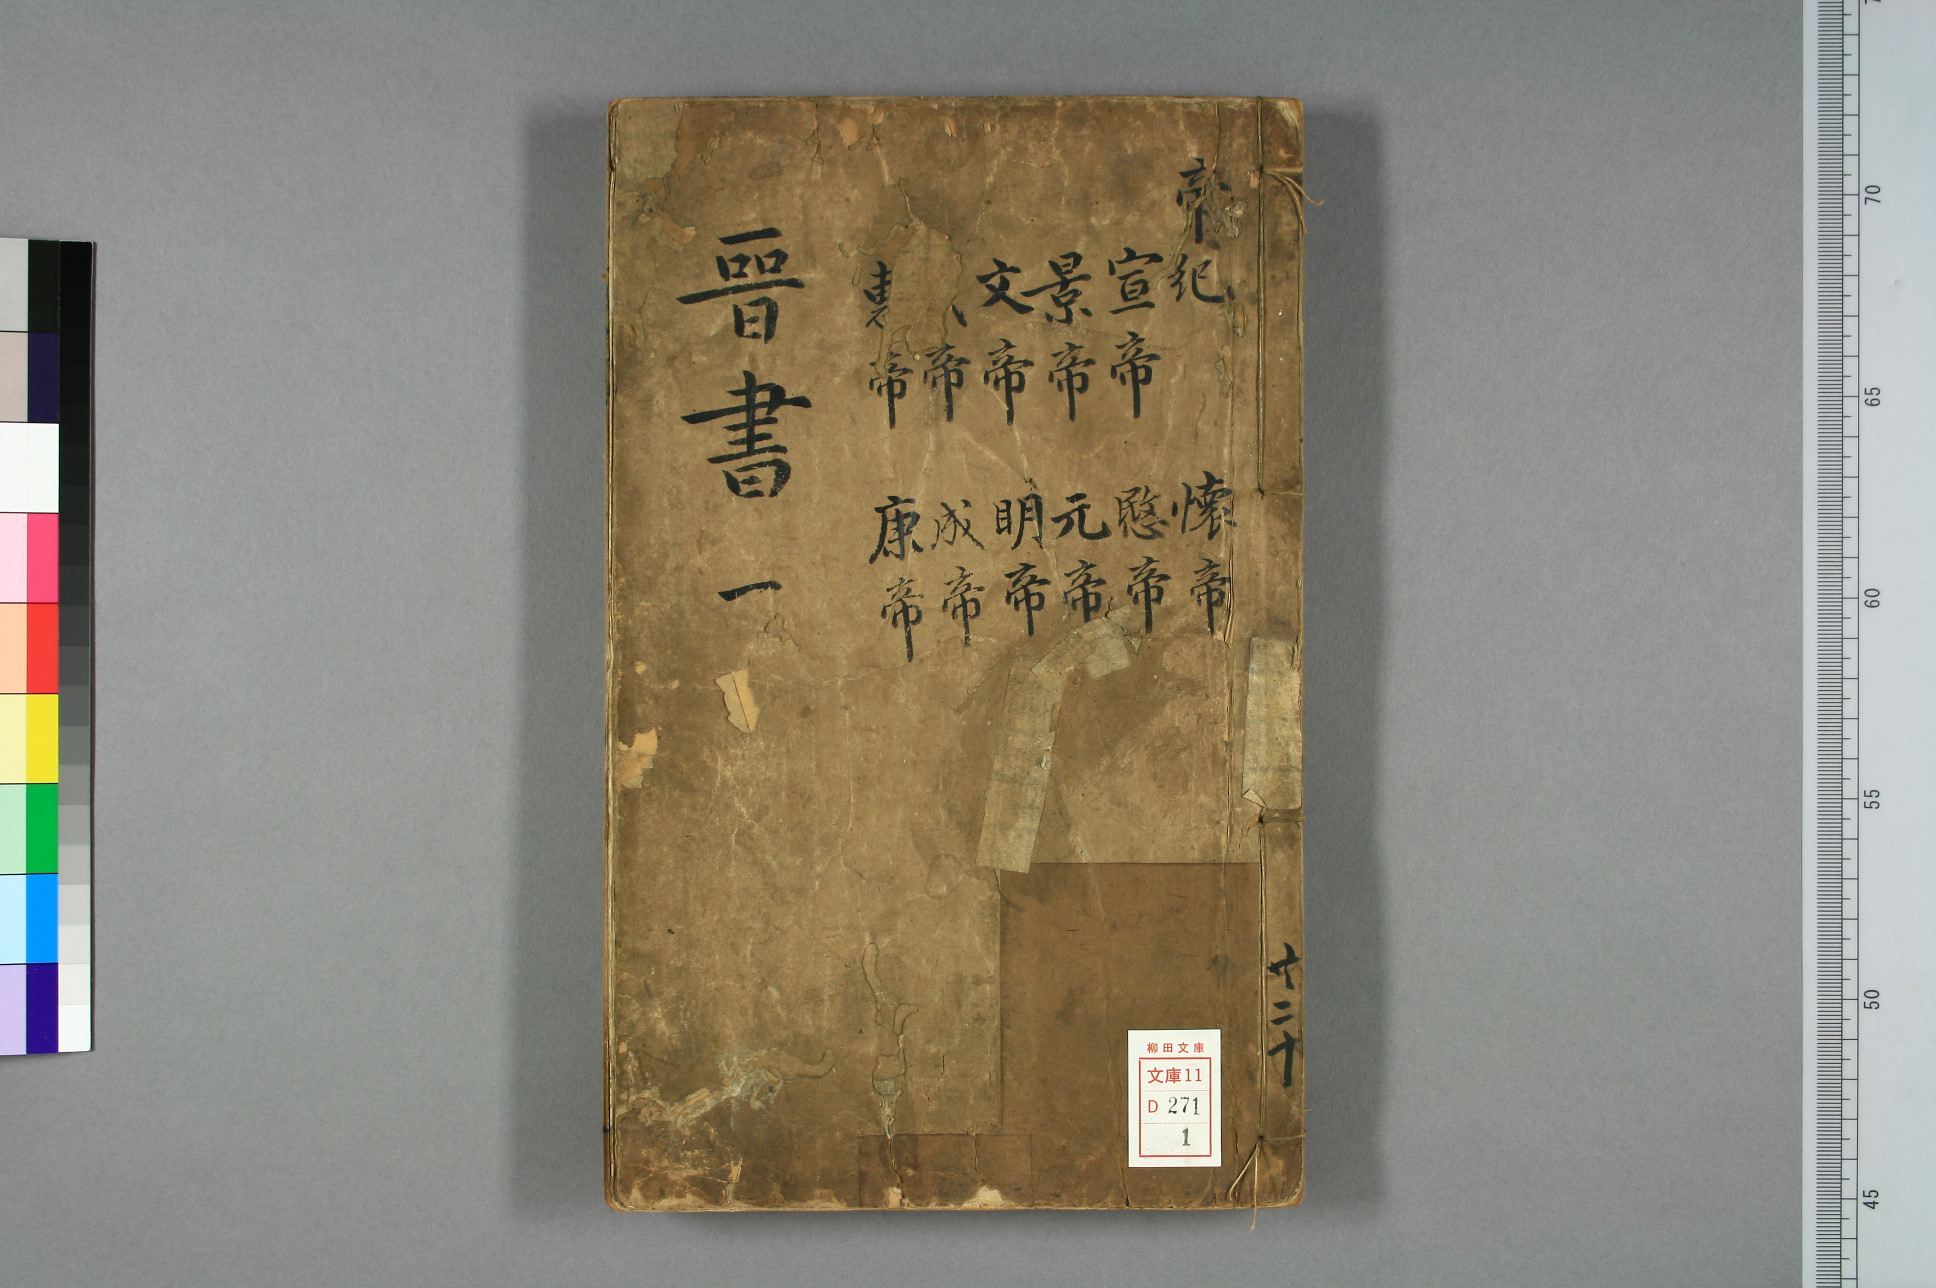 帝紀
宣帝
景帝
文帝
帝
惠帝
懷帝
愍帝
元帝
明帝
成帝
康帝
晉書 一
共二十
柳田文庫
文庫11
D 271
1
70
65
60
55
50
45